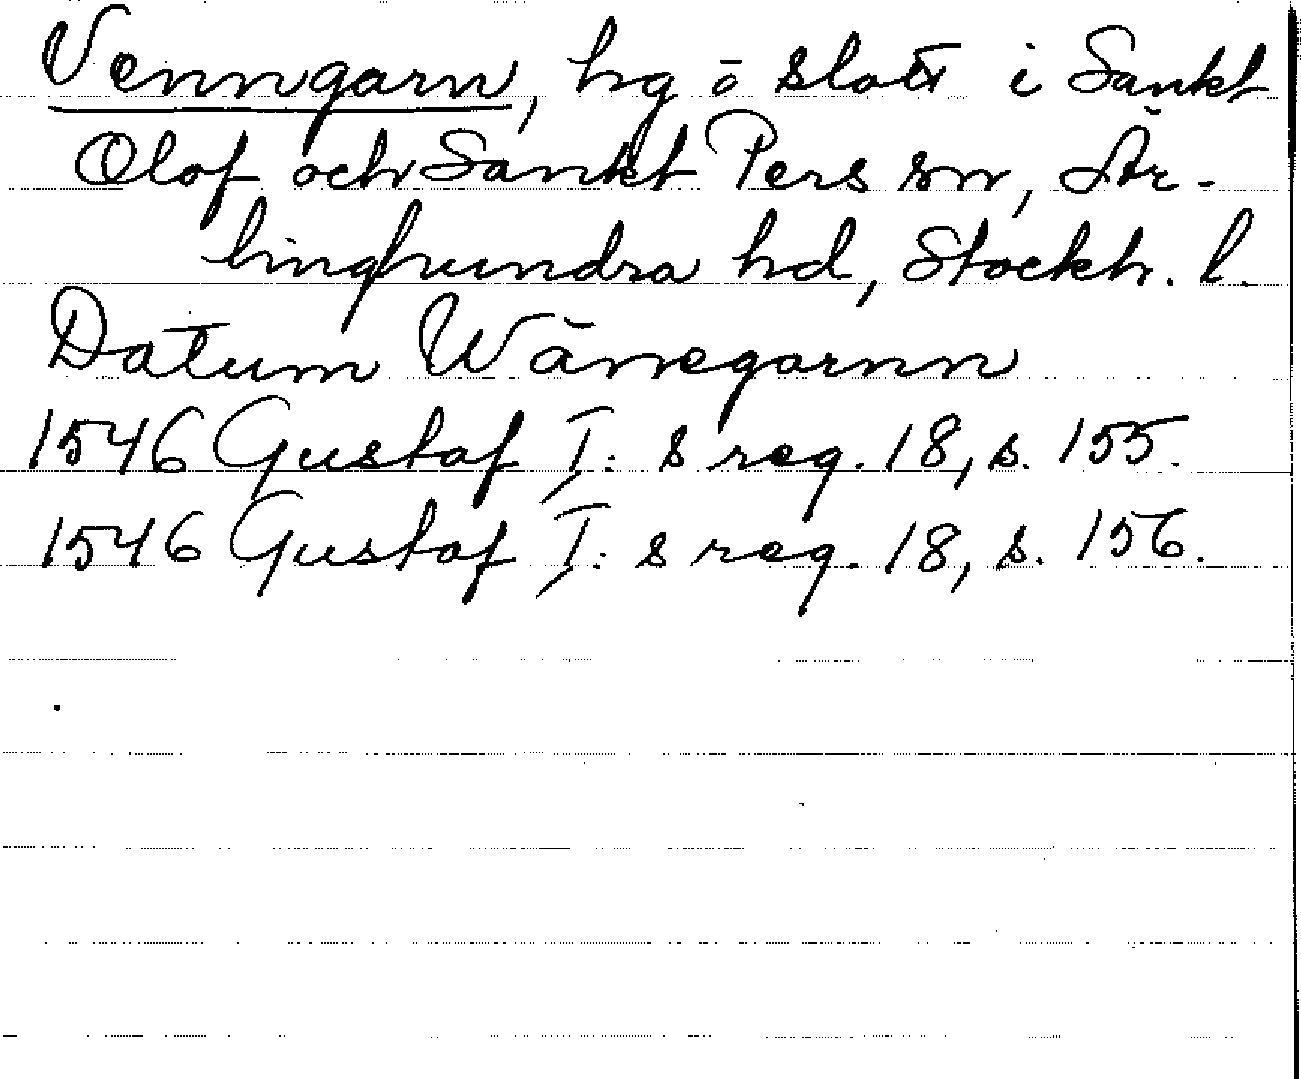 Venngarn, hg o slott i Sankt
Olof och Sankt Pers sn, Är-
linghundra hd, Stockh. l.
Datum Wänegarnn
1546 Gustaf I: s reg. 18, s. 155.
1546 Gustaf I: s reg. 18, s. 156.